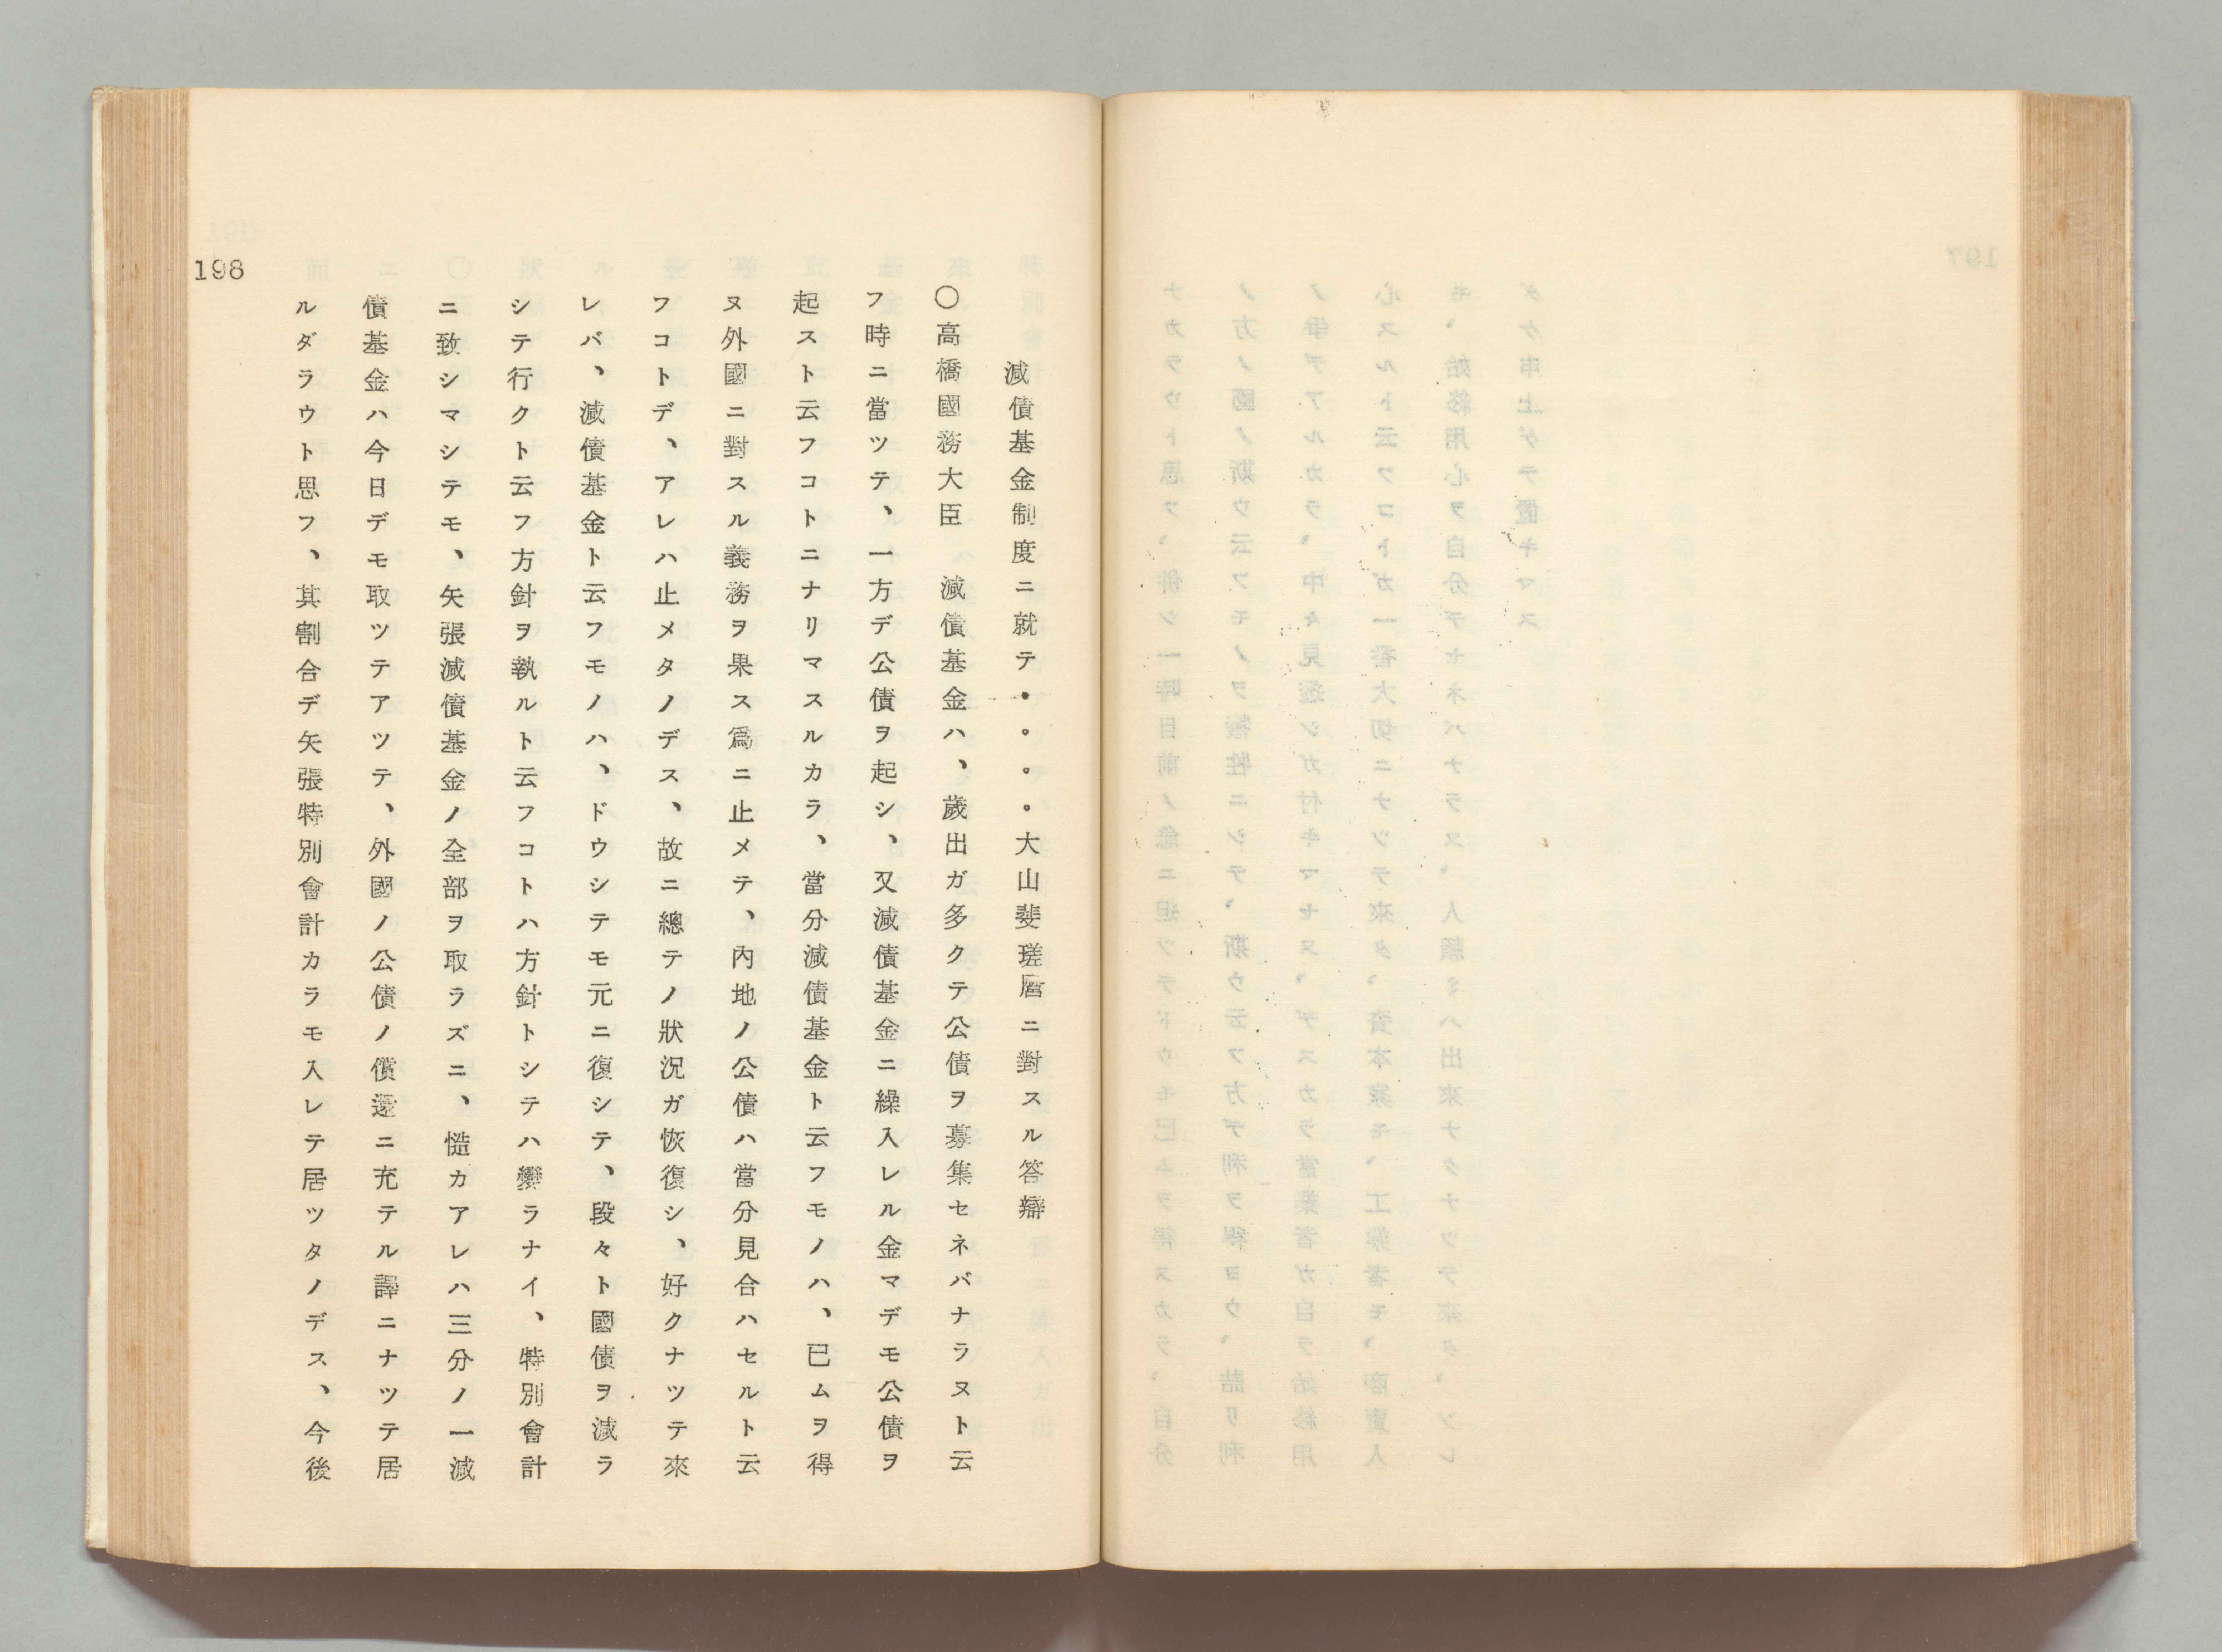 減債基金制度ニ就テ・。。。大山斐瑳麿ニ對スル答辯
〇高橋國務大臣　減債基金ハ、歲出ガ多クテ公債ヲ募集セネバナラヌト云
フ時ニ當ツテ、一方デ公債ヲ起シ、又減債基金ニ繰入レル金マデモ公債ヲ
起スト云フコトニナリマスルカラ、當分減債基金ト云フモノハ、已ムヲ得
ヌ外國ニ對スル義務ヲ果ス爲ニ止メテ、內地ノ公債ハ當分見合ハセルト云
フコトデ、アレハ止メタノデス、故ニ總テノ狀況ガ恢復シ、好クナツテ來
レバ、減債基金ト云フモノハ、ドウシテモ元ニ復シテ、段々ト國債ヲ減ラ
シテ行クト云フ方針ヲ執ルト云フコトハ方針トシテハ變ラナイ、特別會計
ニ致シマシテモ、矢張減債基金ノ全部ヲ取ラズニ、慥カアレハ三分ノ一減
債基金ハ今日デモ取ツテアツテ、外國ノ公債ノ償還ニ充テル譯ニナツテ居
ルダラウト思フ、其割合デ矢張特別會計カラモ入レテ居ツタノデス、今後
198